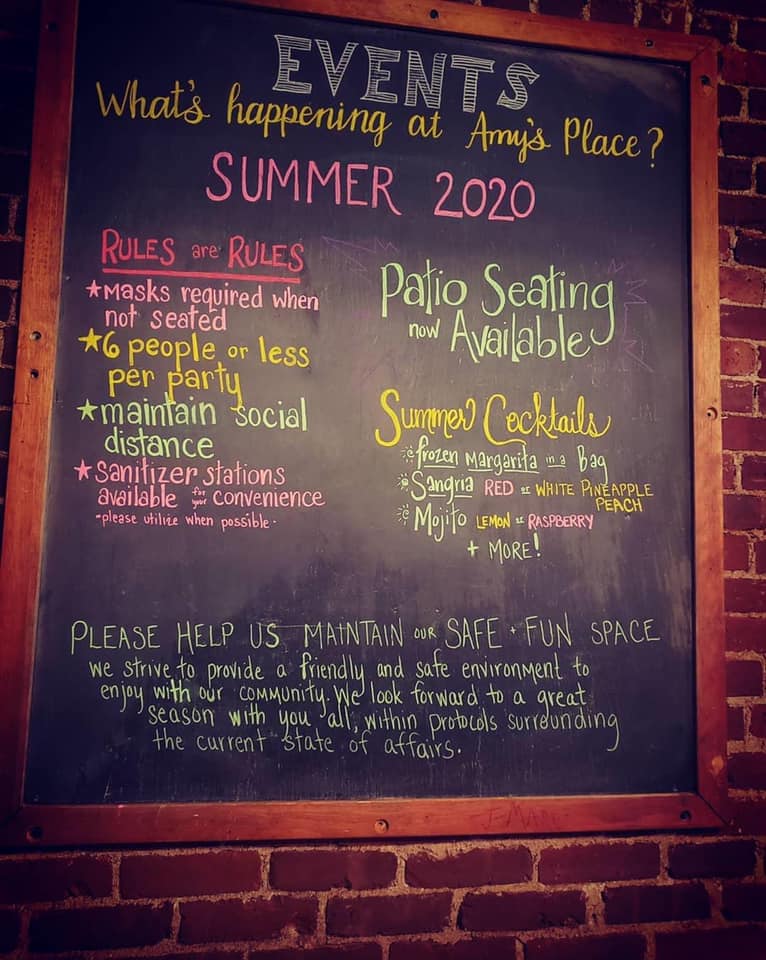 EVENTS
What's happening at Amy's Place?
SUMMER 2020
RULES are RULES
★Masks required when
not seated
★6 people or less
per party
★maintain social
distance
★Sanitizer stations
available for your convenience
-please utilize when possible-
Patio Seating
now Available
Summer Cocktails
frozen Margarita in a Bag
Sangria RED or WHITE PINEAPPLE
PEACH
Mojito LEMON or RASPBERRY
+ MORE!
PLEASE HELP US MAINTAIN OUR SAFE + FUN SPACE
we strive to provide a friendly and safe environment to
enjoy with our community. We look forward to a great
season with you all, within protocols surrounding
the current state of affairs.